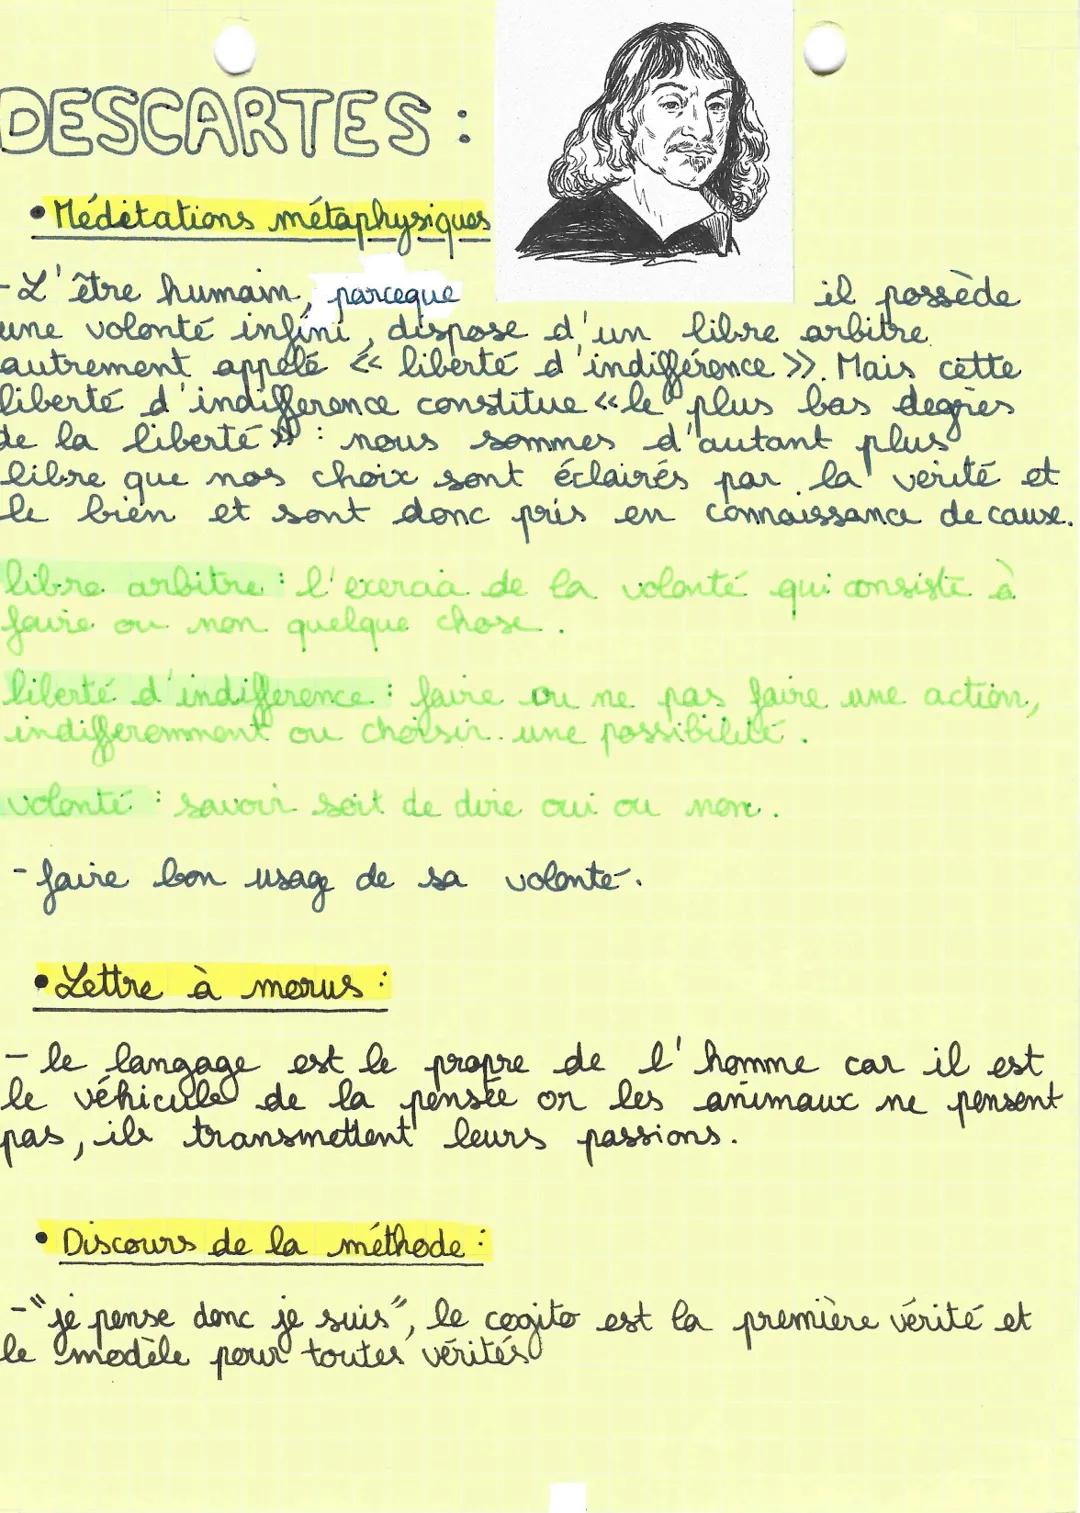 DESCARTES :
• Méditations métaphysiques
- L'être humain, parceque il possède
une volonté infini, dispose d'un libre arbitre
autrement appelé << liberté d'indifférence >>. Mais cette
liberté d'indifference constitue << le plus bas degrés
de la liberté >> : nous sommes d'autant plus
libre que nos choix sont éclairés par la vérité et
le bien et sont donc pris en connaissance de cause.
libre arbitre : l'exercice de la volonté qui consiste à
faire ou non quelque chose.
liberté d'indifference : faire ou ne pas faire une action,
indifferemment ou choisir une possibilité.
volonté : savoir soit de dire oui ou non.
- faire bon usage de sa volonté.
• Lettre à morus :
- le langage est le propre de l'homme car il est
le véhicule de la pensée or les animaux ne pensent
pas, ils transmettent leurs passions.
• Discours de la méthode :
- "je pense donc je suis", le cogito est la première vérité et
le modèle pour toutes vérités